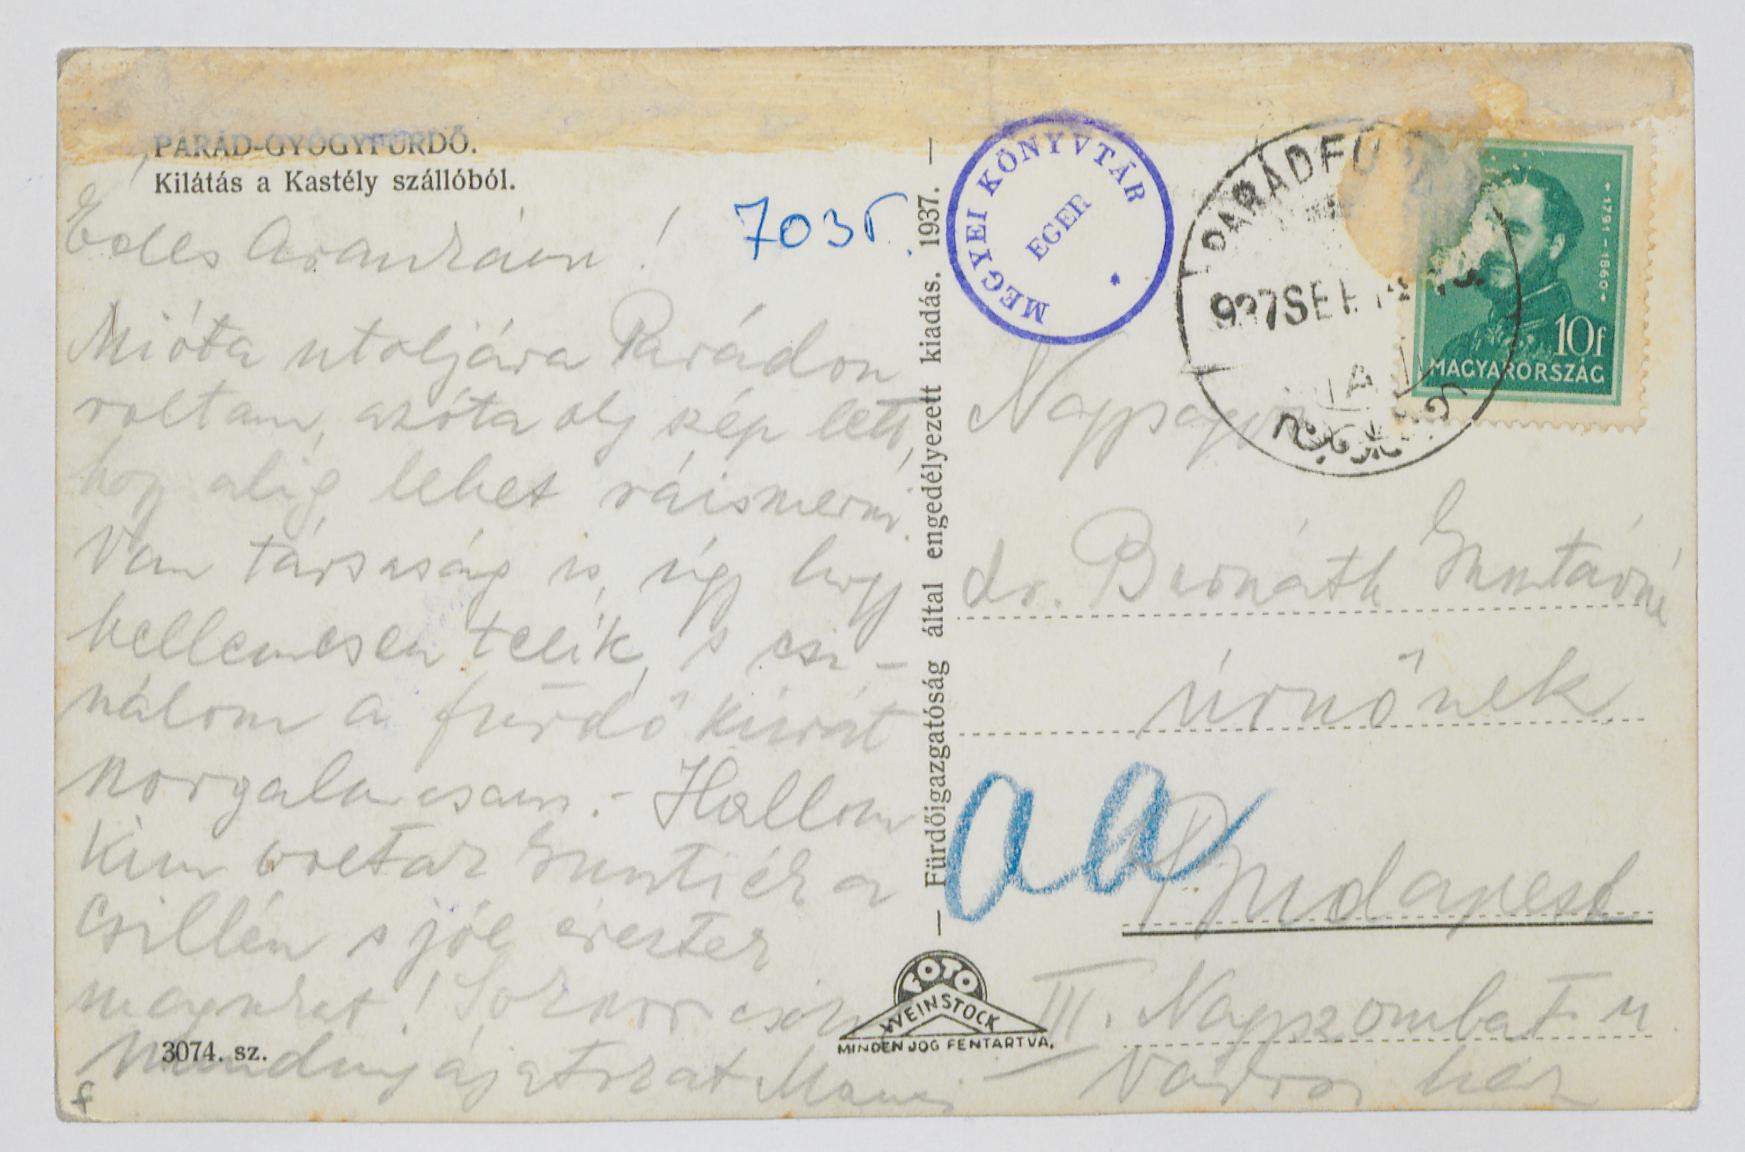 PARÁD-GYÓGYFÜRDŐ.
Kilátás a Kastély szállóból.
Édes Arankám!
Mióta utoljára Parádon
voltam, azóta oly szép lett,
hogy alig lehet ráismerni.
Van társaság is, úgy hogy
kellemesen telik, s csi-
nálom a fürdő kúrát
szorgalmasan. - Hallom
kim voltak Gusztiék a
csillén s jól érezték
magukat! Sokszor csókol
Mindnyájatokat Manci
3074. sz.
7035.
— Fürdőigazgatóság által engedélyezett kiadás. 1937. —
MEGYEI KÖNYVTÁR
EGER
PARÁDFÜ
937 SEP
A
1791-1860
10f
MAGYARORSZÁG
Nagyságos
dr. Bernáth Gusztávné
úrnőnek
aa
Budapest
III. Nagyszombat u
Városi ház
FOTO
WEINSTOCK
MINDEN JOG FENTARTVA.